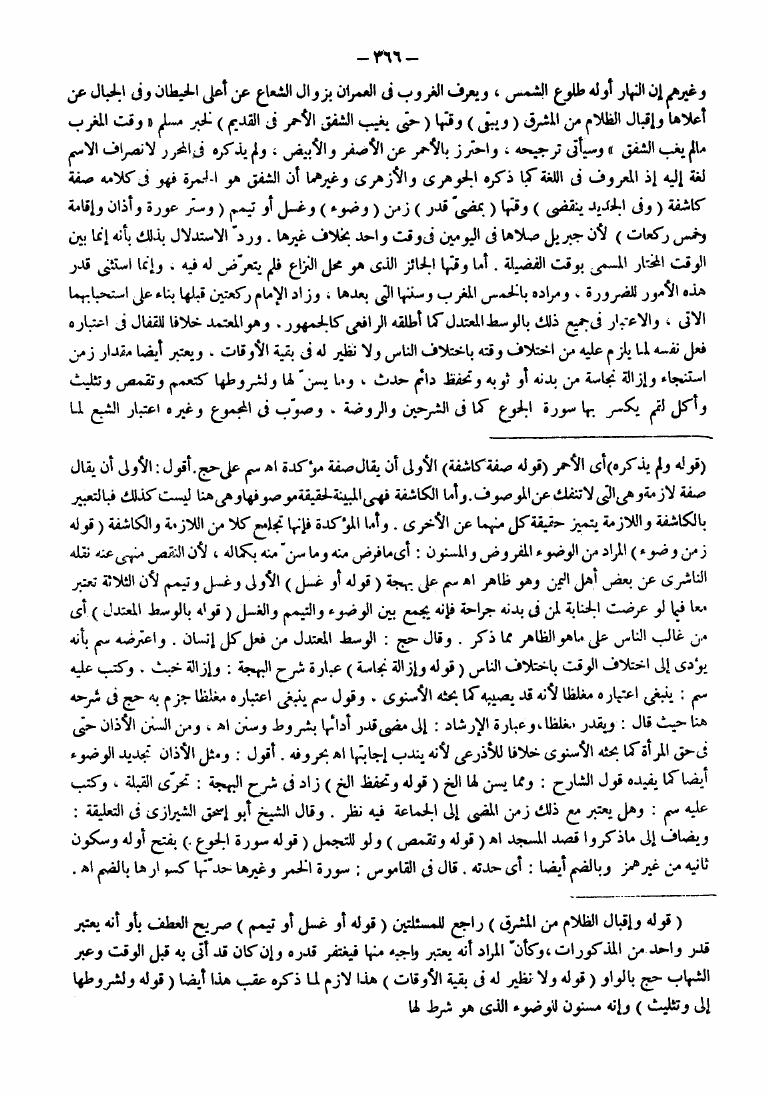 — ٣٦٦ —
وغيرهم إن النهار أوله طلوع الشمس ، ويعرف الغروب فى العمران بزوال الشعاع عن أعلى الحيطان وفى الجبال عن
أعلاها وإقبال الظلام من المشرق ( ويبقى ) وقتها ( حتى يغيب الشفق الأحمر فى القديم ) لخبر مسلم « وقت المغرب
مالم يغب الشفق » وسيأتى ترجيحه ، واحترز بالأحمر عن الأصفر والأبيض ، ولم يذكره فى المحرر لانصراف الاسم
لغة إليه إذ المعروف فى اللغة كما ذكره الجوهرى والأزهرى وغيرهما أن الشفق هو الحمرة فهو فى كلامه صفة
كاشفة ( وفى الجديد ينقضى ) وقتها ( بمضىّ قدر ) زمن ( وضوء ) وغسل أو تيمم ( وستر عورة وأذان وإقامة
وخمس ركعات ) لأن جبريل صلاها فى اليومين فى وقت واحد بخلاف غيرها . وردّ الاستدلال بذلك بأنه إنما بين
الوقت المختار المسمى بوقت الفضيلة . أما وقتها الجائز الذى هو محل النزاع فلم يتعرّض له فيه ، وإنما استثنى قدر
هذه الأمور للضرورة ، ومراده بالخمس المغرب وسننها التى بعدها ، وزاد الإمام ركعتين قبلها بناء على استحبابهما
الآتى ، والاعتبار فى جميع ذلك بالوسط المعتدل كما أطلقه الرافعى كالجمهور . وهو المعتمد خلافا للقفال فى اعتباره
فعل نفسه لما يلزم عليه من اختلاف وقته باختلاف الناس ولا نظير له فى بقية الأوقات ، ويعتبر أيضا مقدار زمن
استنجاء وإزالة نجاسة من بدنه أو ثوبه وتحفظ دائم حدث ، وما يسنّ لها ولشروطها كتعمم وتقمص وتثليث
وأكل لقم يكسر بها سورة الجوع كما فى الشرحين والروضة ، وصوّب فى المجموع وغيره اعتبار الشبع لما
(قوله ولم يذكره) أى الأحمر (قوله صفة كاشفة) الأولى أن يقال صفة مؤكدة اه سم على حج. أقول : الأولى أن يقال
صفة لازمة وهى التى لاتنفك عن الموصوف. وأما الكاشفة فهى المبينة لحقيقة موصوفها وهى هنا ليست كذلك فبالتعبير
بالكاشفة واللازمة يتميز حقيقة كل منهما عن الأخرى . وأما المؤكدة فإنها تجامع كلا من اللازمة والكاشفة ( قوله
زمن وضوء ) المراد من الوضوء المفروض والمسنون : أى مافرض منه وما سنّ منه بكماله ، لأن النقص منهى عنه نقله
الناشرى عن بعض أهل اليمن وهو ظاهر اه سم على بهجة ( قوله أو غسل ) الأولى وغسل وتيمم لأن الثلاثة تعتبر
معا فيما لو عرضت الجنابة لمن فى بدنه جراحة فإنه يجمع بين الوضوء والتيمم والغسل ( قوله بالوسط المعتدل ) أى
من غالب الناس على ماهو الظاهر مما ذكر . وقال حج : الوسط المعتدل من فعل كل إنسان . واعترضه سم بأنه
يؤدى إلى اختلاف الوقت باختلاف الناس ( قوله وإزالة نجاسة ) عبارة شرح البهجة : وإزالة خبث . وكتب عليه
سم : ينبغى اعتباره مغلظا لأنه قد يصيبه كما بحثه الأسنوى . وقول سم ينبغى اعتباره مغلظا جزم به حج فى شرحه
هنا حيث قال : ويقدر مغلظا، وعبارة الإرشاد : إلى مضى قدر أدائها بشروط وسنن اه ، ومن السنن الأذان حتى
فى حق المرأة كما بحثه الأسنوى خلافا للأذرعى لأنه يندب إجابتها اه بحروفه . أقول : ومثل الأذان تجديد الوضوء
أيضا كما يفيده قول الشارح : ومما يسن لها الخ ( قوله وتحفظ الخ ) زاد فى شرح البهجة : تحرّى القبلة ، وكتب
عليه سم : وهل يعتبر مع ذلك زمن المضى إلى الجماعة فيه نظر . وقال الشيخ أبو إسحق الشيرازى فى التعليقة :
ويضاف إلى ماذكروا قصد المسجد اه ( قوله وتقمص ) ولو للتجمل ( قوله سورة الجوع ) بفتح أوله وسكون
ثانيه من غير همز وبالضم أيضا : أى حدته . قال فى القاموس : سورة الخمر وغيرها حدّتها كسوارها بالضم اه .
( قوله وإقبال الظلام من المشرق ) راجع للمسئلتين ( قوله أو غسل أو تيمم ) صريح العطف بأو أنه يعتبر
قدر واحد من المذكورات ، وكأنّ المراد أنه يعتبر واجبه منها فيغتفر قدره وإن كان قد أتى به قبل الوقت وعبر
الشهاب حج بالواو ( قوله ولا نظير له فى بقية الأوقات ) هذا لازم لما ذكره عقب هذا أيضا ( قوله ولشروطها
إلى وتثليث ) وإنه مسنون للوضوء الذى هو شرط لها